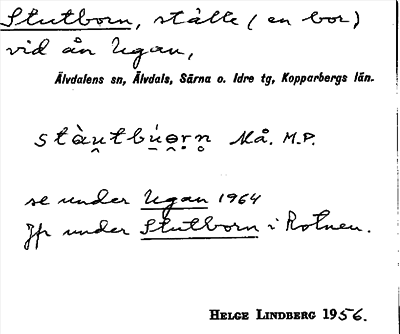 Stutborn, ställe (en bor)
vid ån Ugan,
Älvdalens sn, Älvdals, Särna o. Idre tg, Kopparbergs län.
stàu̯tbú̯ɵ̯r̥n̥ Må. M.P.
se under Ugan 1964
Jfr under Stutborn i Rotnen.
HELGE LINDBERG 1956.